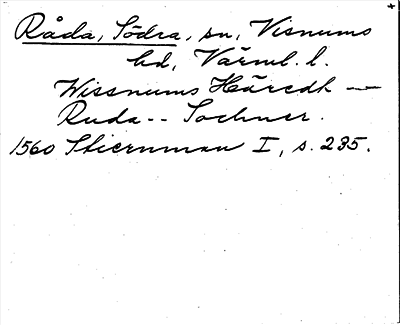 Råda, Södra, sn, Visnums
hd, Värml. l.
Wissnums Häredh —
Ruda -- Sochner.
1560 Stiernman I, s. 235.